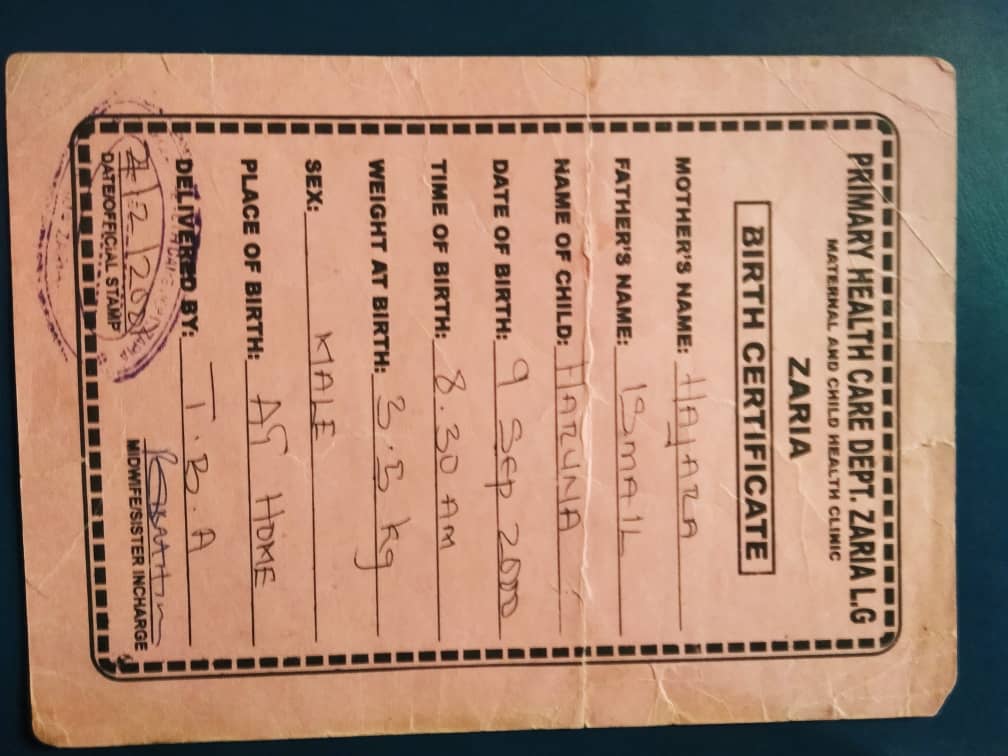 PRIMARY HEALTH CARE DEPT. ZARIA L.G
MATERNAL AND CHILD HEALTH CLINIC
ZARIA
BIRTH CERTIFICATE
MOTHER'S NAME: HAJARA
FATHER'S NAME: ISMAIL
NAME OF CHILD: HARUNA
DATE OF BIRTH: 9 Sep 2000
TIME OF BIRTH: 8.30 AM
WEIGHT AT BIRTH: 3.5 kg
SEX: MALE
PLACE OF BIRTH: AT HOME
DELIVERED BY: T.B.A
DATE/OFFICIAL STAMP
MIDWIFE/SISTER INCHARGE